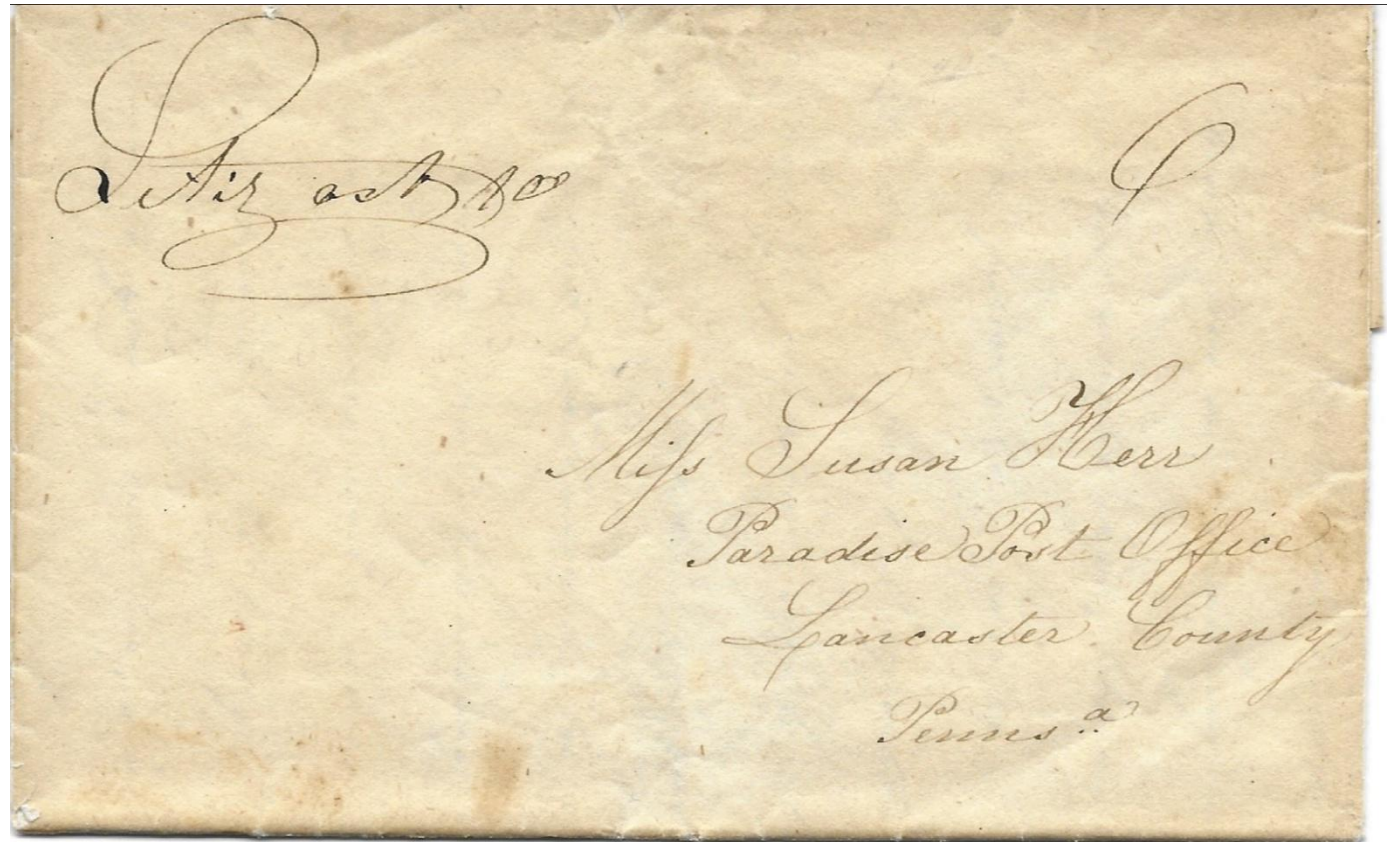 Litiz oct
6
Miſs Susan Herr
Paradise Post Office
Lancaster County
Penns.a